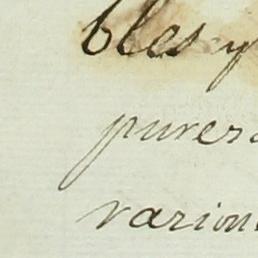 bles y
pureza
varion